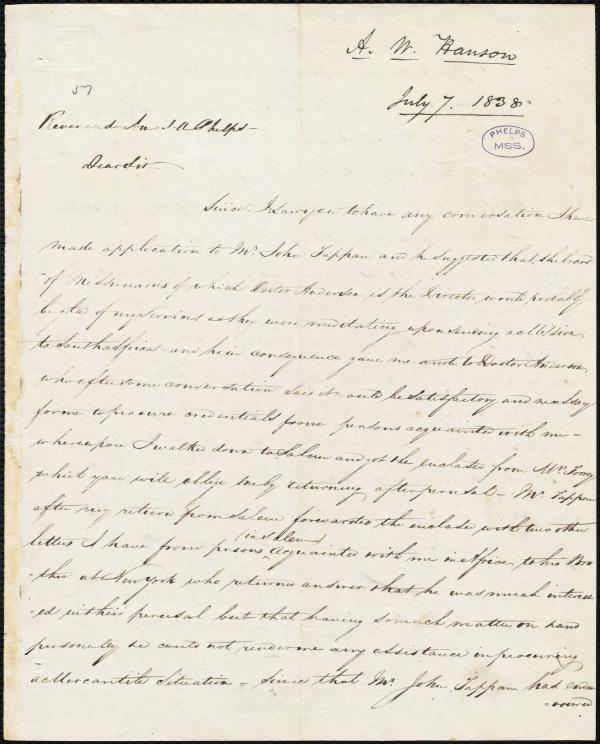 A. W. Hanson
July 7. 1838
57
PHELPS
MSS.
Reverend A. A. Phelps—
Dear Sir—
Since I saw you to have any conversation I have
made application to Mr. John Tappan and he suggested that the board
of Missionaries of which Doctor Anderson is the Director would probably
be glad of my services as they were meditating upon sending a Mission
to South Africa — and he in consequence gave me a note to Doctor Anderson,
who after some conversation said it would be satisfactory and necessary
for me to procure credentials from persons acquainted with me —
whereupon I walked down to Salem and got the enclosed from Mr. Torrey
which you will oblige me by returning after perusal — Mr. Tappan
after my return from Salem forwarded the enclose with two other
letters I have from prsons (in Salem) acquainted with me in Africa, to his Bro
-ther at New York who returned answer that he was much interest
-ed with their perusal but that having so much matter on hand
personally he could not render me any assistance in procuring
a Mercantile Situation — Since that Mr. John Tappan had endea
-voured